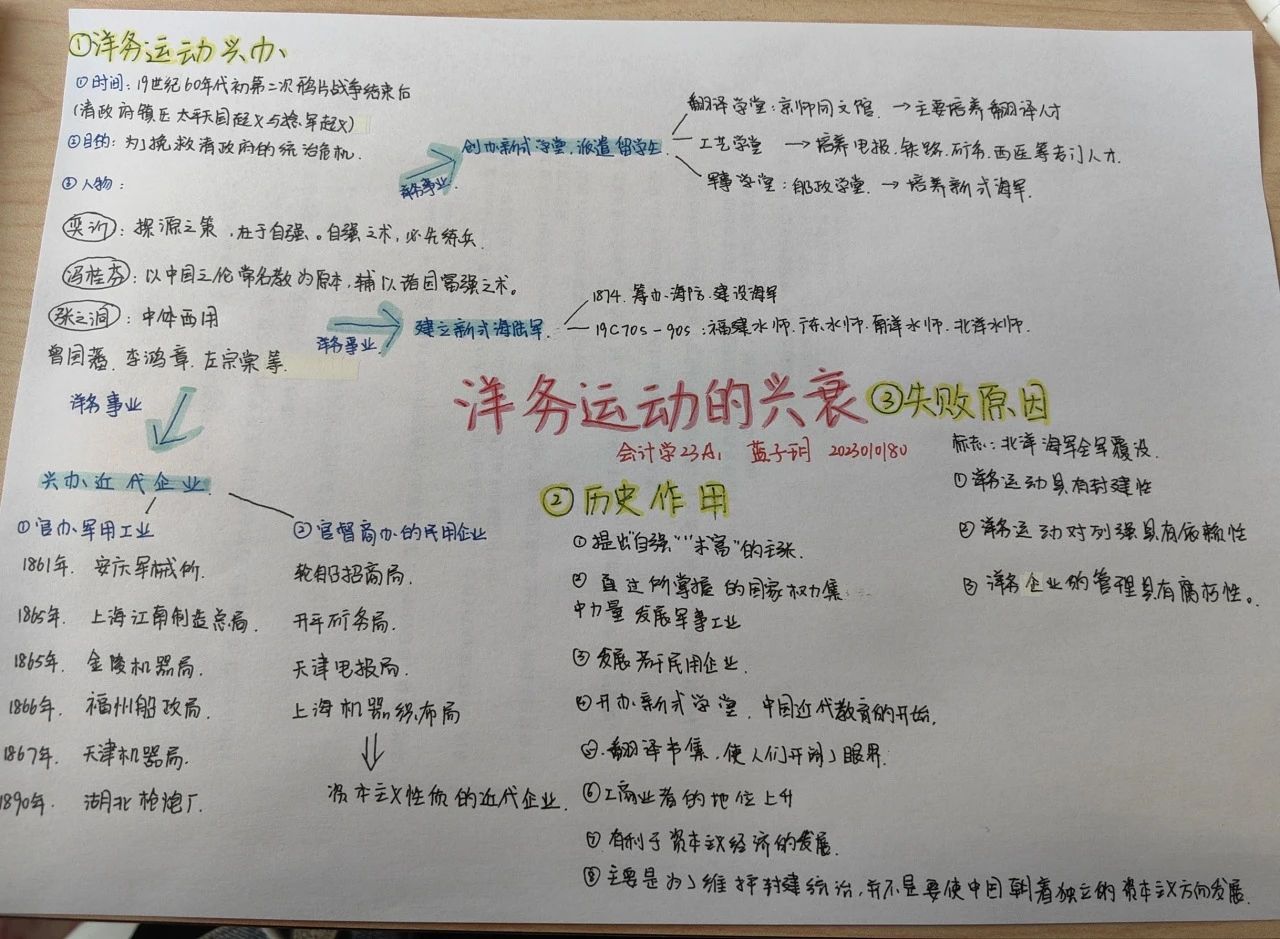 ①洋务运动兴办
①时间：19世纪60年代初第二次鸦片战争结束后
(清政府镇压太平天国起义与捻军起义)
②目的：为了挽救清政府的统治危机.
③人物：
奕䜣：探源之策,在于自强。自强之术,必先练兵.
冯桂芬：以中国之伦常名教为原本,辅以诸国富强之术。
张之洞：中体西用
曾国藩.李鸿章.左宗棠等.
洋务事业.
创办新式学堂.派遣留学生
翻译学堂：京师同文馆 → 主要培养翻译人才
工艺学堂 → 培养电报.铁路.矿务.西医等专门人才.
军事学堂：船政学堂. → 培养新式海军.
洋务事业
建立新式海陆军.
1874.筹办海防.建设海军
19C70s-90s：福建水师.广东水师.南洋水师.北洋水师.
洋务事业
兴办近代企业.
①官办军用工业
1861年. 安庆军械所.
1865年. 上海江南制造总局.
1865年. 金陵机器局.
1866年. 福州船政局.
1867年. 天津机器局.
1890年. 湖北枪炮厂.
②官督商办的民用企业
轮船招商局.
开平矿务局.
天津电报局.
上海机器织布局
⇓
资本主义性质的近代企业.
洋务运动的兴衰
会计学23A1 蓝子玥 2023010180
②历史作用
①提出"自强""求富"的主张.
②直过所掌握的国家权力集
中力量发展军事工业
③发展若干民用企业.
④开办新式学堂,中国近代教育的开始.
⑤.翻译书集,使人们开阔了眼界.
⑥工商业者的地位上升
⑦有利于资本主义经济的发展.
⑧主要是为了维护封建统治,并不是要使中国朝着独立的资本主义方向发展.
③失败原因
标志：北洋海军全军覆没.
①洋务运动具有封建性
②洋务运动对列强具有依赖性
③洋务企业的管理具有腐朽性。